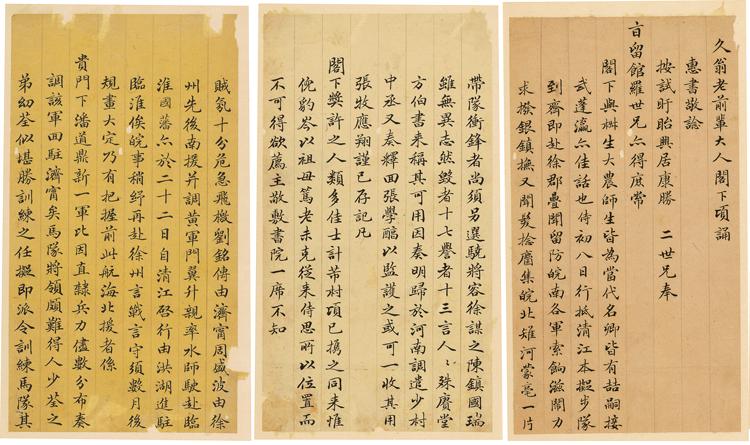 久翁老前輩大人閣下頃誦
惠書敬諗
按試盱眙興居康勝 二世兄奉
旨留館羅世兄亦得庶常
閣下與樹生大農師生皆為當代名卿皆有喆嗣接
武蓬瀛亦佳話也侍初八日行抵清江本擬步隊
到齊即赴徐郡疊聞留防皖南各軍索餉滋鬧力
求撥銀鎮撫又聞髮捻麕集皖北雉河蒙亳一片
帶隊衝鋒者尚須另選驍將容徐謀之陳鎮國瑞
雖無異志然毀者十七譽者十三言人〻殊賡堂
方伯書來稱其可用因奏明歸於河南調遣少村
中丞又奏釋回張學醅以監護之或可一收其用
張牧應翔謹已存記凡
閣下獎許之人類多佳士計芾村頃已携之同來惟
倪豹岑以祖母篤老未克從來侍思所以位置而
不可得欲薦主敬敷書院一席不知
賊氛十分危急飛檄劉銘傳由濟甯周盛波由徐
州先後南援并調黃軍門翼升親率水師駛赴臨
淮國藩亦於二十二日自清江啟行由洪湖進駐
臨淮俟皖事稍紓再赴徐州言戰言守須數月後
規畫大定乃有把握前此航海北援者係
貴門下潘道鼎新一軍比因直隸兵力儘數分布奏
調該軍回駐濟甯矣馬隊將領頗難得人少荃之
弟幼荃似堪勝訓練之任擬即派令訓練馬隊其